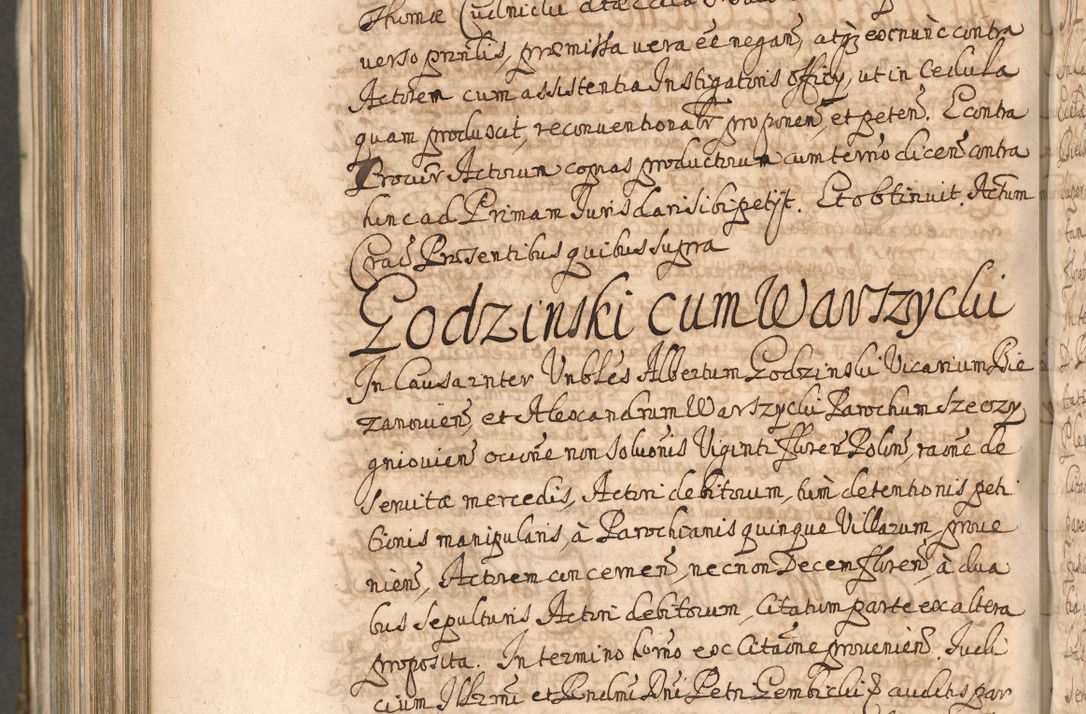 Thomæ
verso prntis, præmissa vera eē negan̄, atq3 ex nunc contra
Actorem cum assistentia Instigatoris officij, ut in Cedula
quam produxit, reconventionatr proponen̄, et peten̄. E contra
Procur Actorum copias productorum cum termo dicen̄ contra
hinc ad Primam Juris dari sibi petijt. Et obtinuit. Actum
Crac̄ Præsentibus quibus supra
Godzinski cum Warszycki
In Causa inter Vnbles Albertum Godzinski Vicarium Bie
zanovien̄, et Alexandrum Warszycki Parochum Szczezy
gniovien̄ occōne non solutionis Viginti floren̄ Polon̄, raōne de
servitæ mercedis, Actori debitorum, tum detentionis peti
tionis manipularis, à Parochianis quinque Villarum prove
nien̄, Actorem concernen̄, nec non Decem floren̄, à dua
bus sepulturis Actori debitorum, Citatum parte ex altera
proposita. In termino horno ex Citaōne provenien̄. Judi
cium Illrmi et Rndmi Dni Petri Gembicki E auditis par